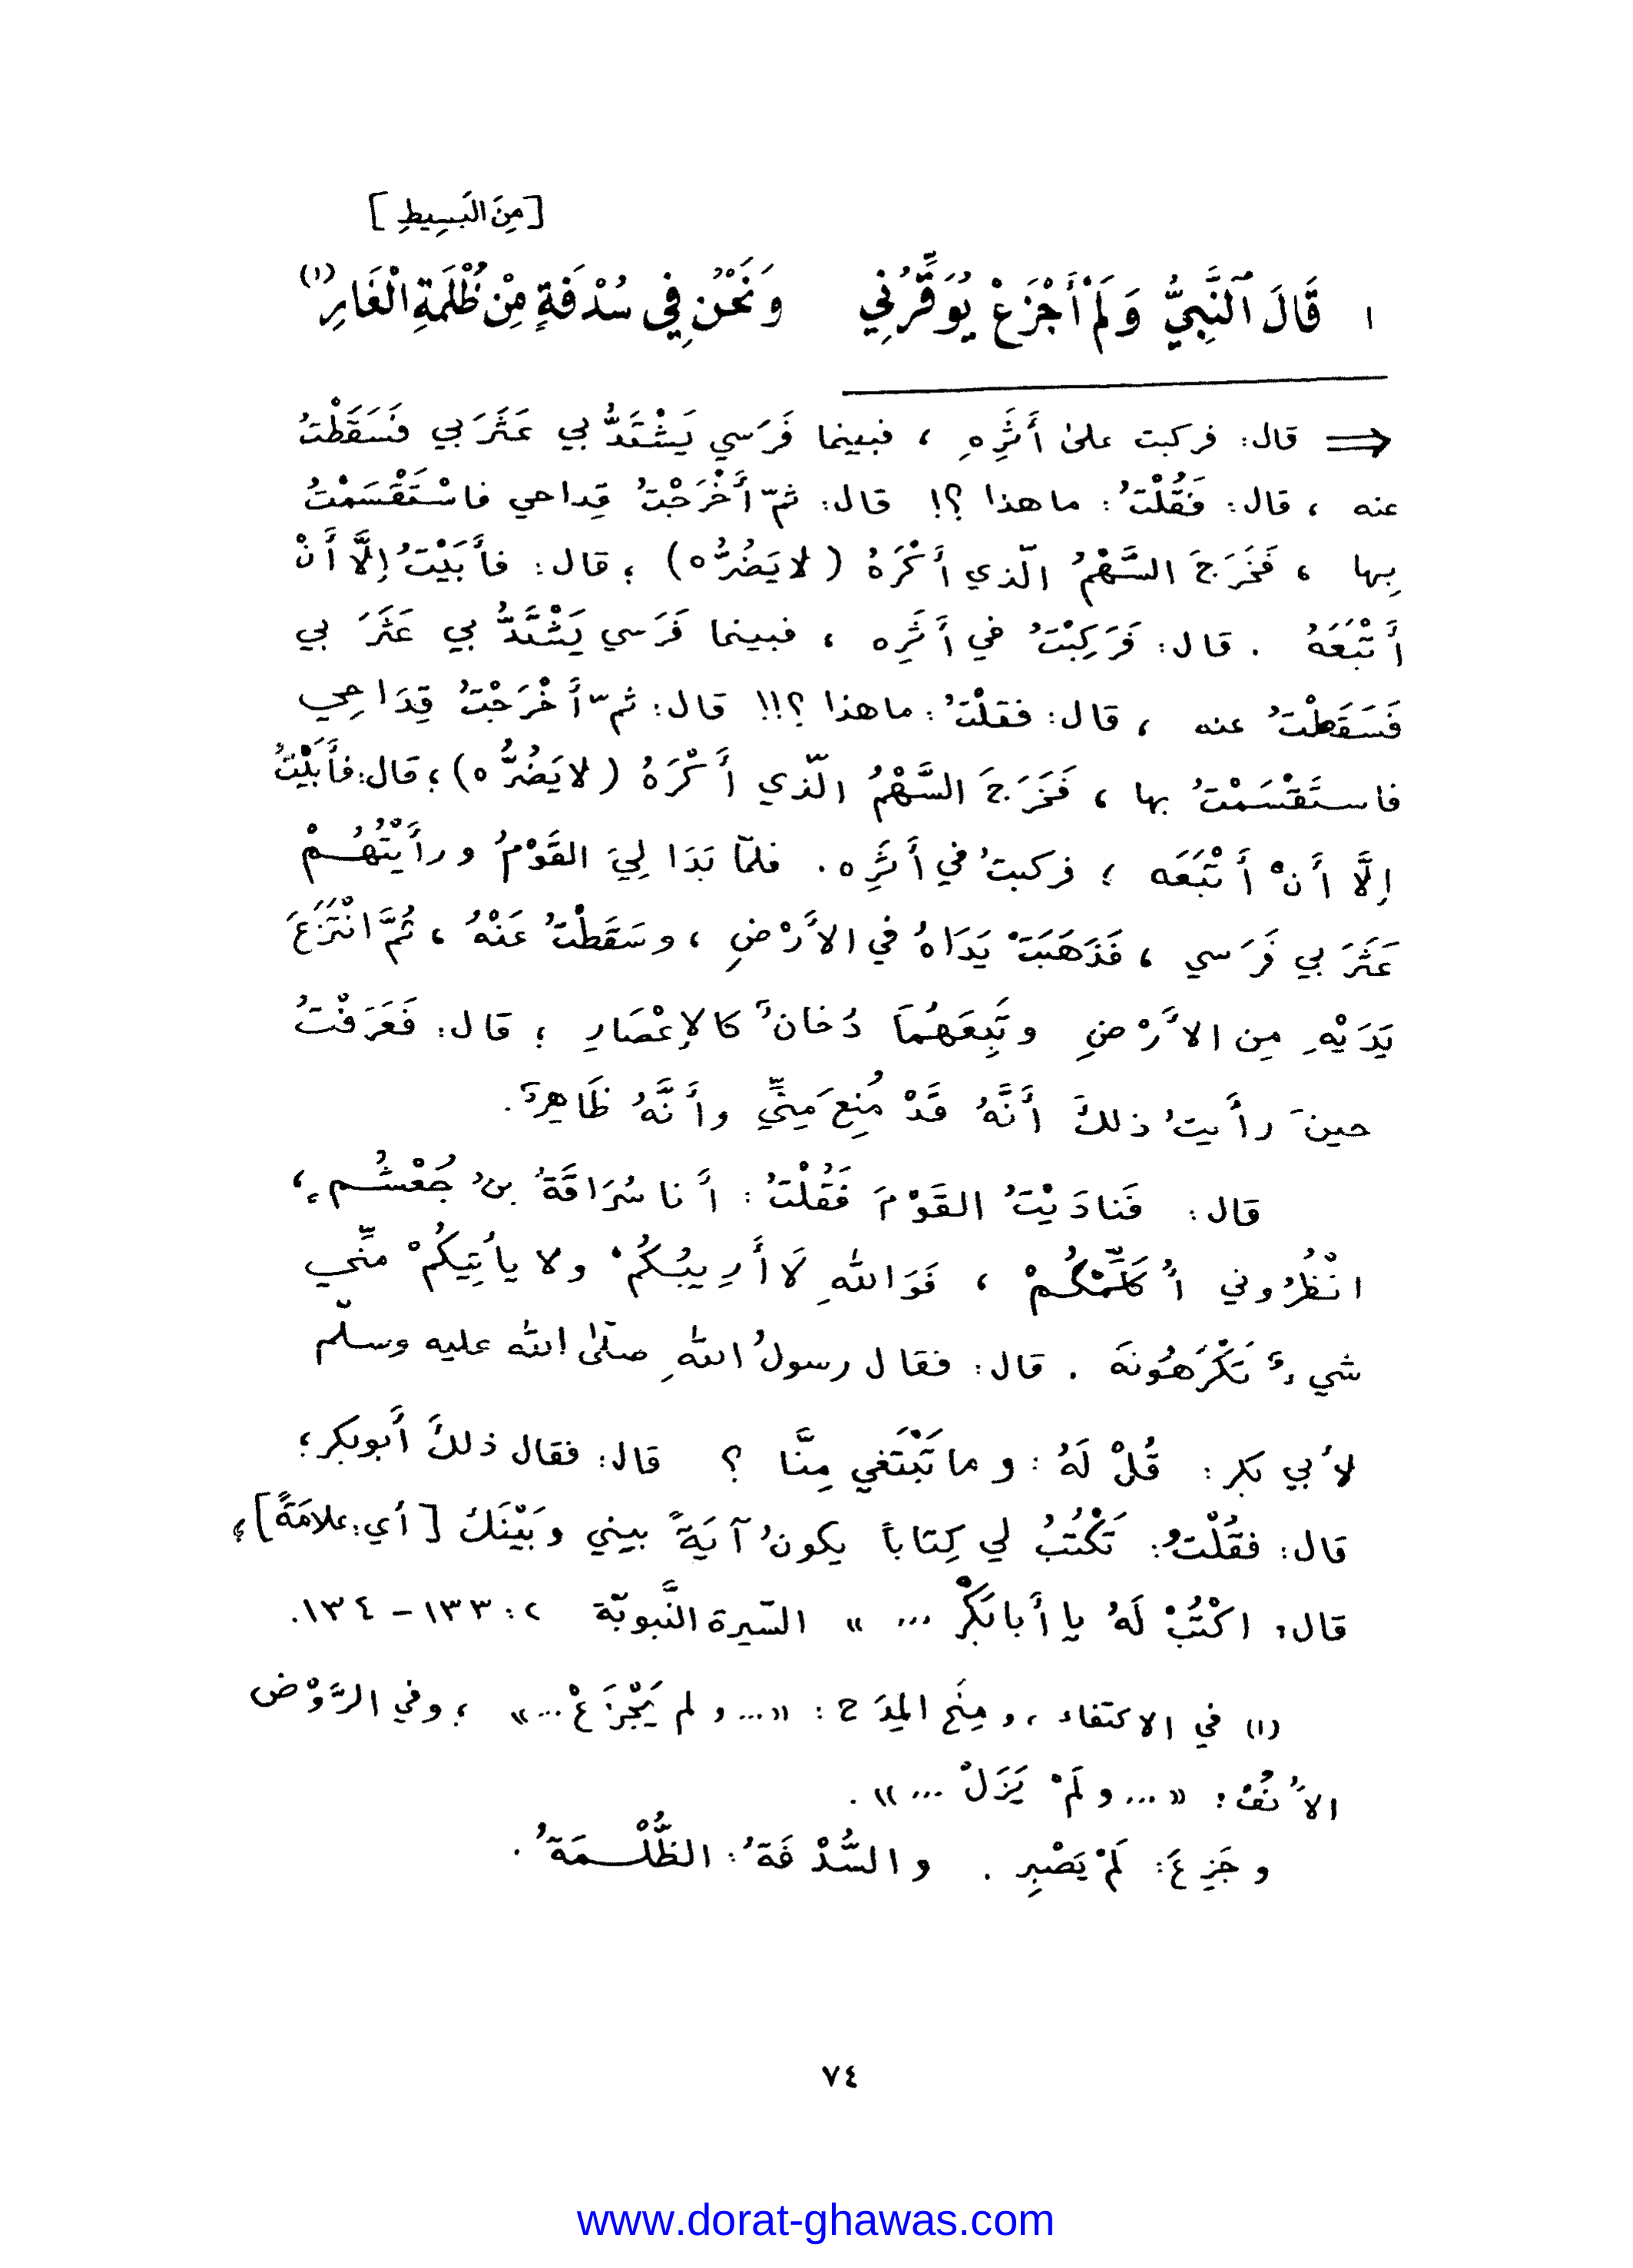 [مِنَ البَسِيطِ]
١ قَالَ ٱلنَّبِيُّ وَلَمْ أَجْزَعْ يُوَقِّرُنِي وَنَحْنُ فِي سُدْفَةٍ مِنْ ظُلْمَةِ الْغَارِ (١)
⇐ قال: فركبت علىٰ أَثَرِهِ ، فبينما فَرَسي يَشْتَدُّ بي عَثَرَ بي فَسَقَطْتُ
عنه ، قال: فَقُلْتُ: ما هذا ؟! قال: ثمّ أَخْرَجْتُ قِداحي فاسْتَقْسَمْتُ
بِها ، فَخَرَجَ السَّهْمُ الّذي أَكْرَهُ (لا يَضُرُّه) ؛ قال: فأَبَيْتُ إلَّا أَنْ
أَتْبَعَهُ . قال: فَرَكِبْتُ في أَثَرِه ، فبينما فَرَسي يَشْتَدُّ بي عَثَرَ بي
فَسَقَطْتُ عنه ، قال: فقلْتُ: ما هذا ؟!! قال: ثمّ أَخْرَجْتُ قِدَاحِي
فاستَقْسَمْتُ بها ، فَخَرَجَ السَّهْمُ الّذي أَكْرَهُ (لا يَضُرُّه) ؛ قال: فأَبَيْتُ
إلَّا أَنْ أَتْبَعَه ؛ فركبتُ في أَثَرِه . فلمّا بَدَا لِيَ القَوْمُ ورأَيْتُهُمْ
عَثَرَ بي فَرَسي ، فَذَهَبَتْ يَدَاهُ في الأَرْضِ ، وسَقَطْتُ عَنْهُ ، ثُمَّ انْتَزَعَ
يَدَيْهِ مِن الأَرْضِ وتَبِعَهُمَا دُخانٌ كالإعْصَارِ ؛ قال: فَعَرَفْتُ
حينَ رأَيتُ ذلكَ أَنَّهُ قَدْ مُنِعَ مِنِّي وأَنَّهُ ظَاهِرٌ .
قال: فَنادَيْتُ القَوْمَ فَقُلْتُ: أَنا سُرَاقَةُ بنُ جُعْشُمٍ ،
انْظُرُوني أُكَلِّمْكُمْ ، فَوَاللهِ لَا أَرِيبُكُمْ ولا يأتِيكُمْ منِّي
شيءٌ تَكْرَهُونَهُ . قال: فقال رسولُ اللهِ صلّىٰ الله عليه وسلّم
لأَبي بكر: قُلْ لَهُ: وما تَبْتَغي مِنَّا ؟ قال: فقال ذلكَ أَبو بكر؛
قال: فقُلْتُ: تَكْتُبُ لي كِتاباً يكونُ آيَةً بيني وبَيْنَكَ [أي: علامَةً] ؛
قال: اكْتُبْ لَهُ يا أَبا بَكْرٍ ... » السّيرة النَّبويّة ٢: ١٣٣ - ١٣٤.
(١) في الاكتفاء ، ومِنَح المِدَح : «... ولم يَجْزَعْ ...» ؛ وفي الرَّوْض
الأُنُف: «... ولَمْ يَزَلْ ...» .
وجَزِعَ: لَمْ يَصْبِر . والسُّدْفَةُ: الظُّلْمَةُ .
٧٤
www.dorat-ghawas.com